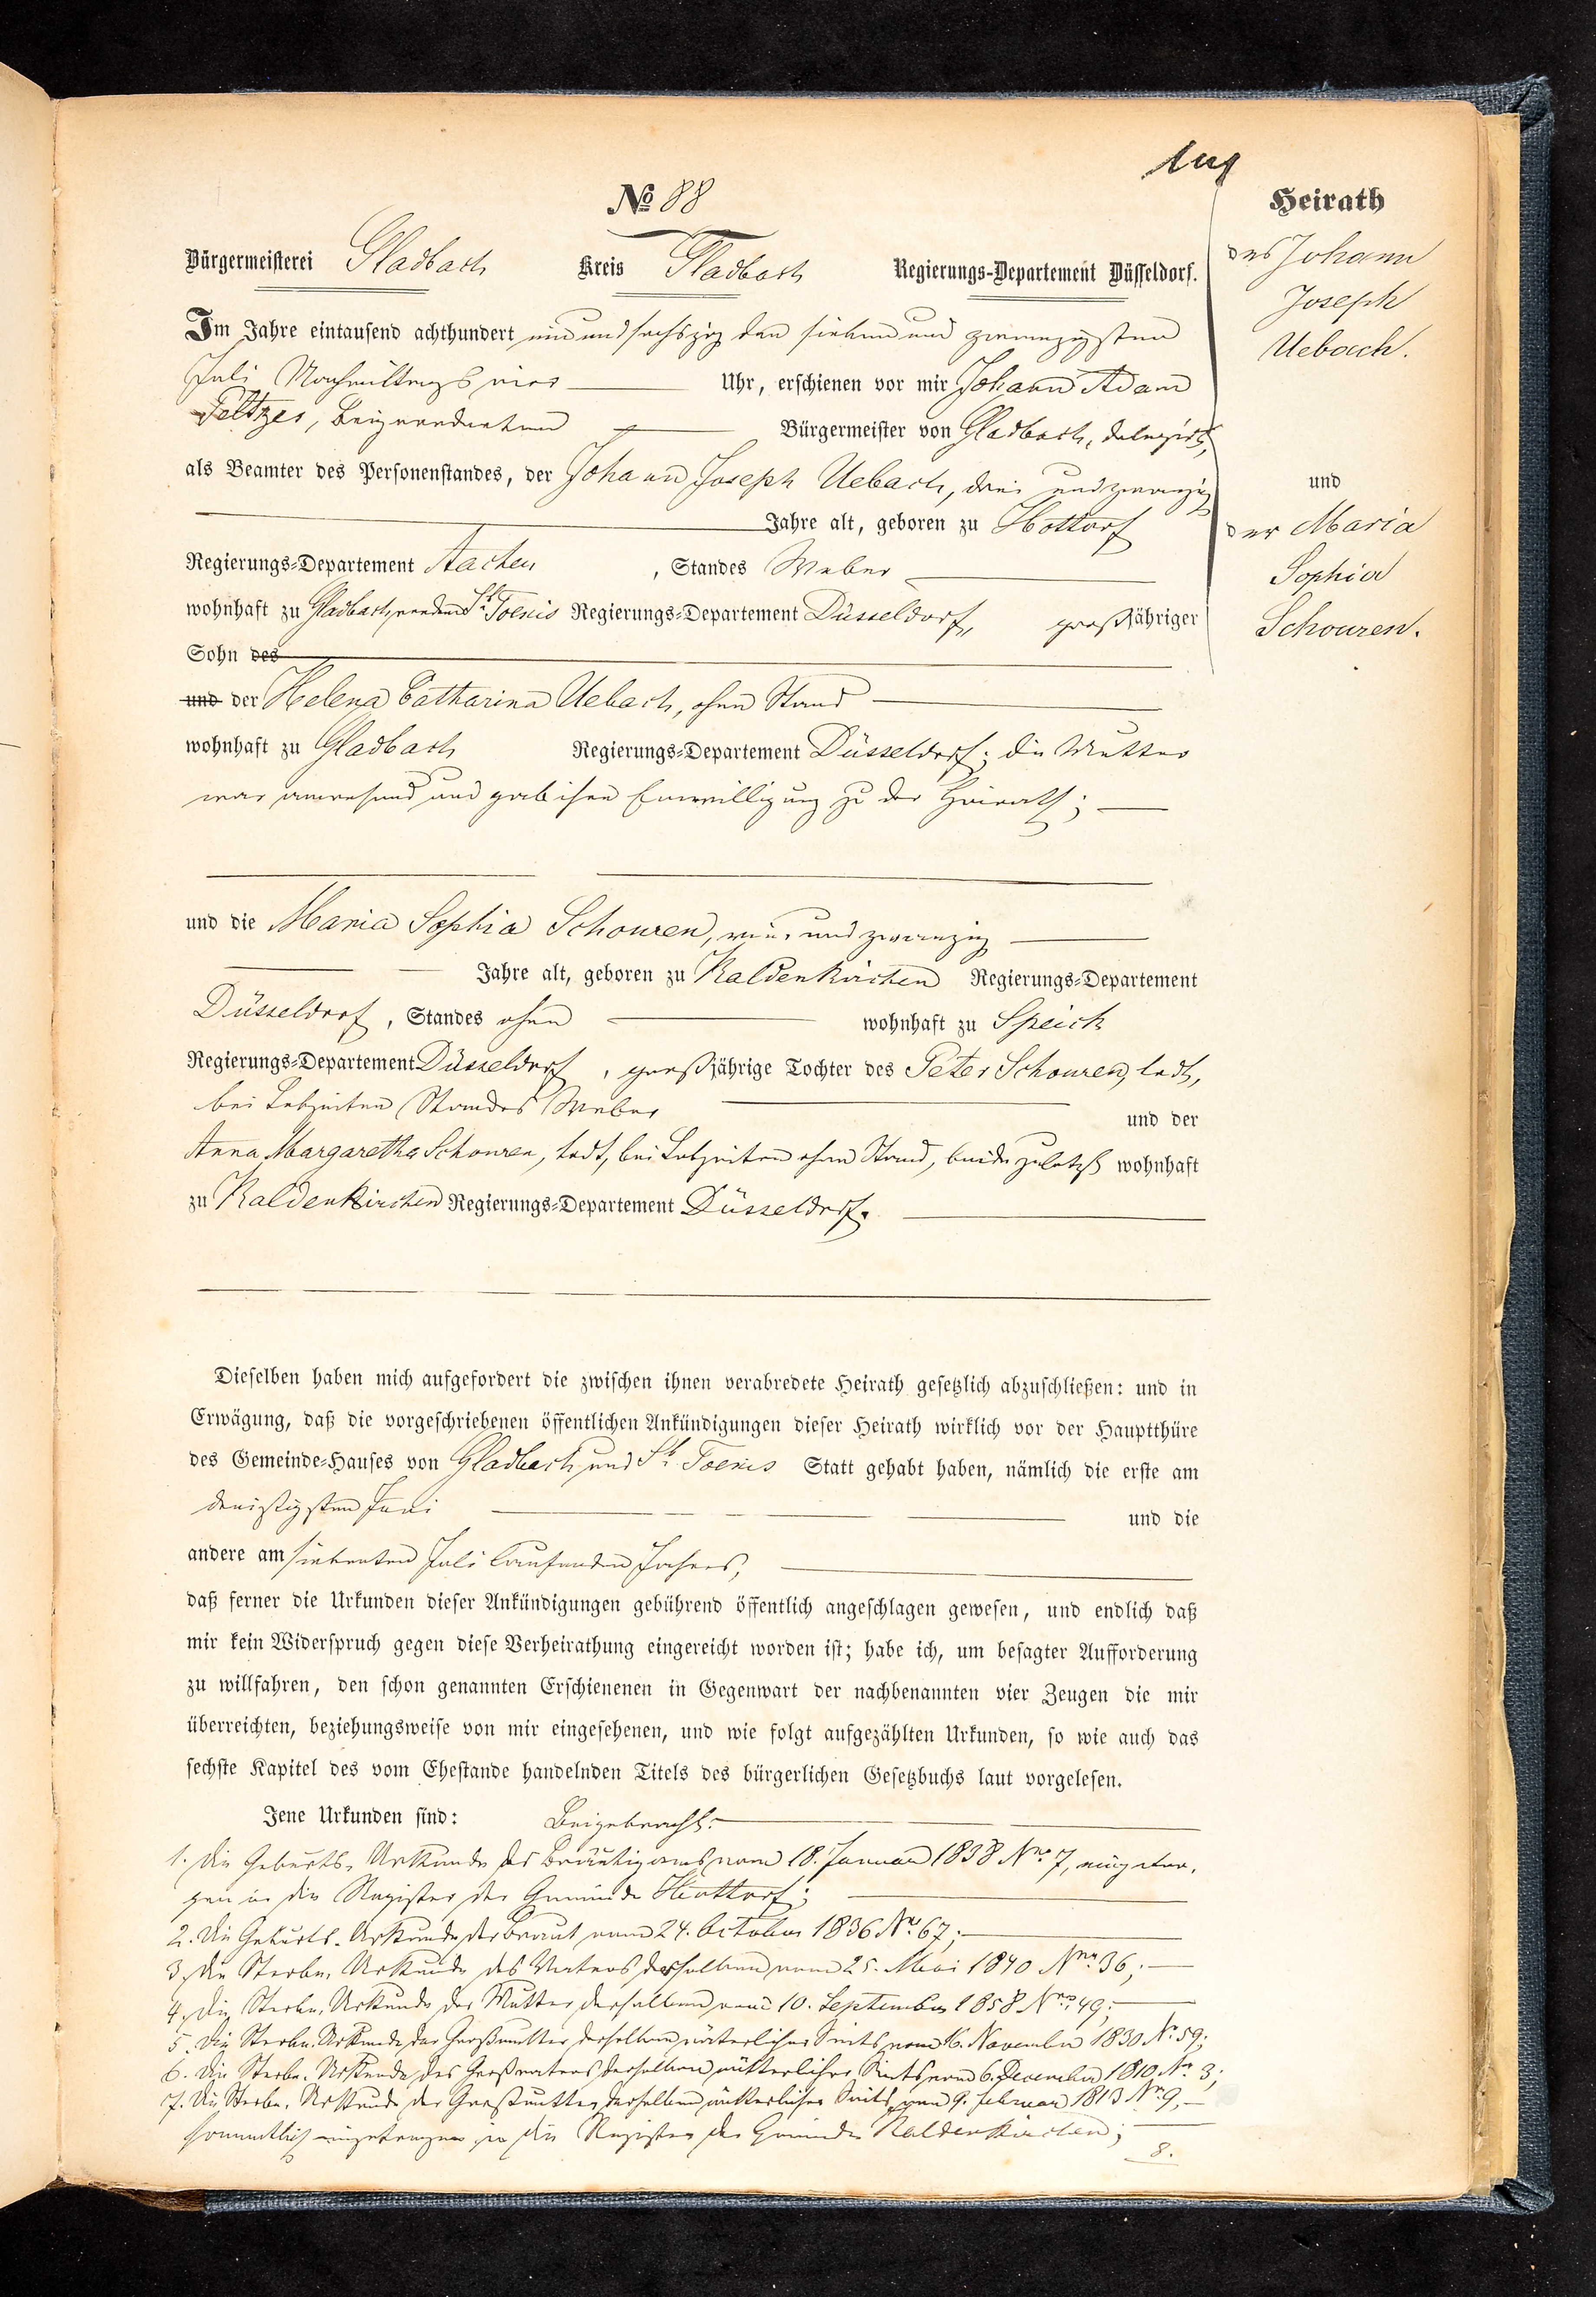 № 88
Heirath
des Johann
Joseph
Uebach.
und
der Maria
Sophia
Schouren.
Bürgermeisterei Gladbach Kreis Gladbach Regierungs-Departement Düsseldorf.
Im Jahre eintausend achthundert ein und sechszig den sieben und zwanzigsten
Juli Nachmittags vier Uhr, erschienen vor mir Johann Adam
Peltzer, Beigeordneten Bürgermeister von Gladbach, delegirt,
als Beamter des Personenstandes, der Johann Joseph Uebach, drei und zwanzig
Jahre alt, geboren zu Hottorf
Regierungs-Departement Aachen, Standes Weber
wohnhaft zu Gladbach, vordem St. Toenis Regierungs-Departement Düsseldorf, großjähriger
Sohn des
und der Helena Catharina Uebach, ohne Stand
wohnhaft zu Gladbach Regierungs-Departement Düsseldorf; die Mutter
war anwesend und gab ihre Einwilligung zu der Heirath;
und die Maria Sophia Schouren, vier und zwanzig
Jahre alt, geboren zu Kaldenkirchen Regierungs-Departement
Düsseldorf, Standes ohne wohnhaft zu Speick
Regierungs-Departement Düsseldorf, großjährige Tochter des Peter Schouren, todt,
bei Lebzeiten Standes Weber und der
Anna Margaretha Schouren, todt, bei Lebzeiten ohne Stand, beide zuletzt wohnhaft
zu Kaldenkirchen Regierungs-Departement Düsseldorf.
Dieselben haben mich aufgefordert die zwischen ihnen verabredete Heirath gesetzlich abzuschließen: und in
Erwägung, daß die vorgeschriebenen öffentlichen Ankündigungen dieser Heirath wirklich vor der Hauptthüre
des Gemeinde-Hauses von Gladbach und St. Toenis Statt gehabt haben, nämlich die erste am
dreißigsten Juni und die
andere am siebenten Juli laufenden Jahres,
daß ferner die Urkunden dieser Ankündigungen gebührend öffentlich angeschlagen gewesen, und endlich daß
mir kein Widerspruch gegen diese Verheirathung eingereicht worden ist; habe ich, um besagter Aufforderung
zu willfahren, den schon genannten Erschienenen in Gegenwart der nachbenannten vier Zeugen die mir
überreichten, beziehungsweise von mir eingesehenen, und wie folgt aufgezählten Urkunden, so wie auch das
sechste Kapitel des vom Ehestande handelnden Titels des bürgerlichen Gesetzbuchs laut vorgelesen.
Jene Urkunden sind: Beigebracht:
1. die Geburts-Urkunde des Bräutigams vom 18. Januar 1838 Nro. 7, eingetra-
gen in die Register der Gemeinde Hottorf;
2. die Geburts-Urkunde der Braut vom 24. October 1836 Nr. 67;
3. die Sterbe-Urkunde des Vaters derselben vom 25. Mai 1840 Nro. 36;
4. die Sterbe-Urkunde der Mutter derselben vom 10. September 1858 Nro. 49;
5. die Sterbe-Urkunde der Großmutter derselben väterlicher Seits vom 16. November 1830 Nr. 59;
6. die Sterbe-Urkunde des Großvaters derselben mütterlicher Seits vom 6. December 1810 Nr. 3;
7. die Sterbe-Urkunde der Großmutter derselben mütterlicher Seits vom 9. Februar 1813 Nr. 9,
sämmtlich eingetragen in die Register der Gemeinde Kaldenkirchen;
8.